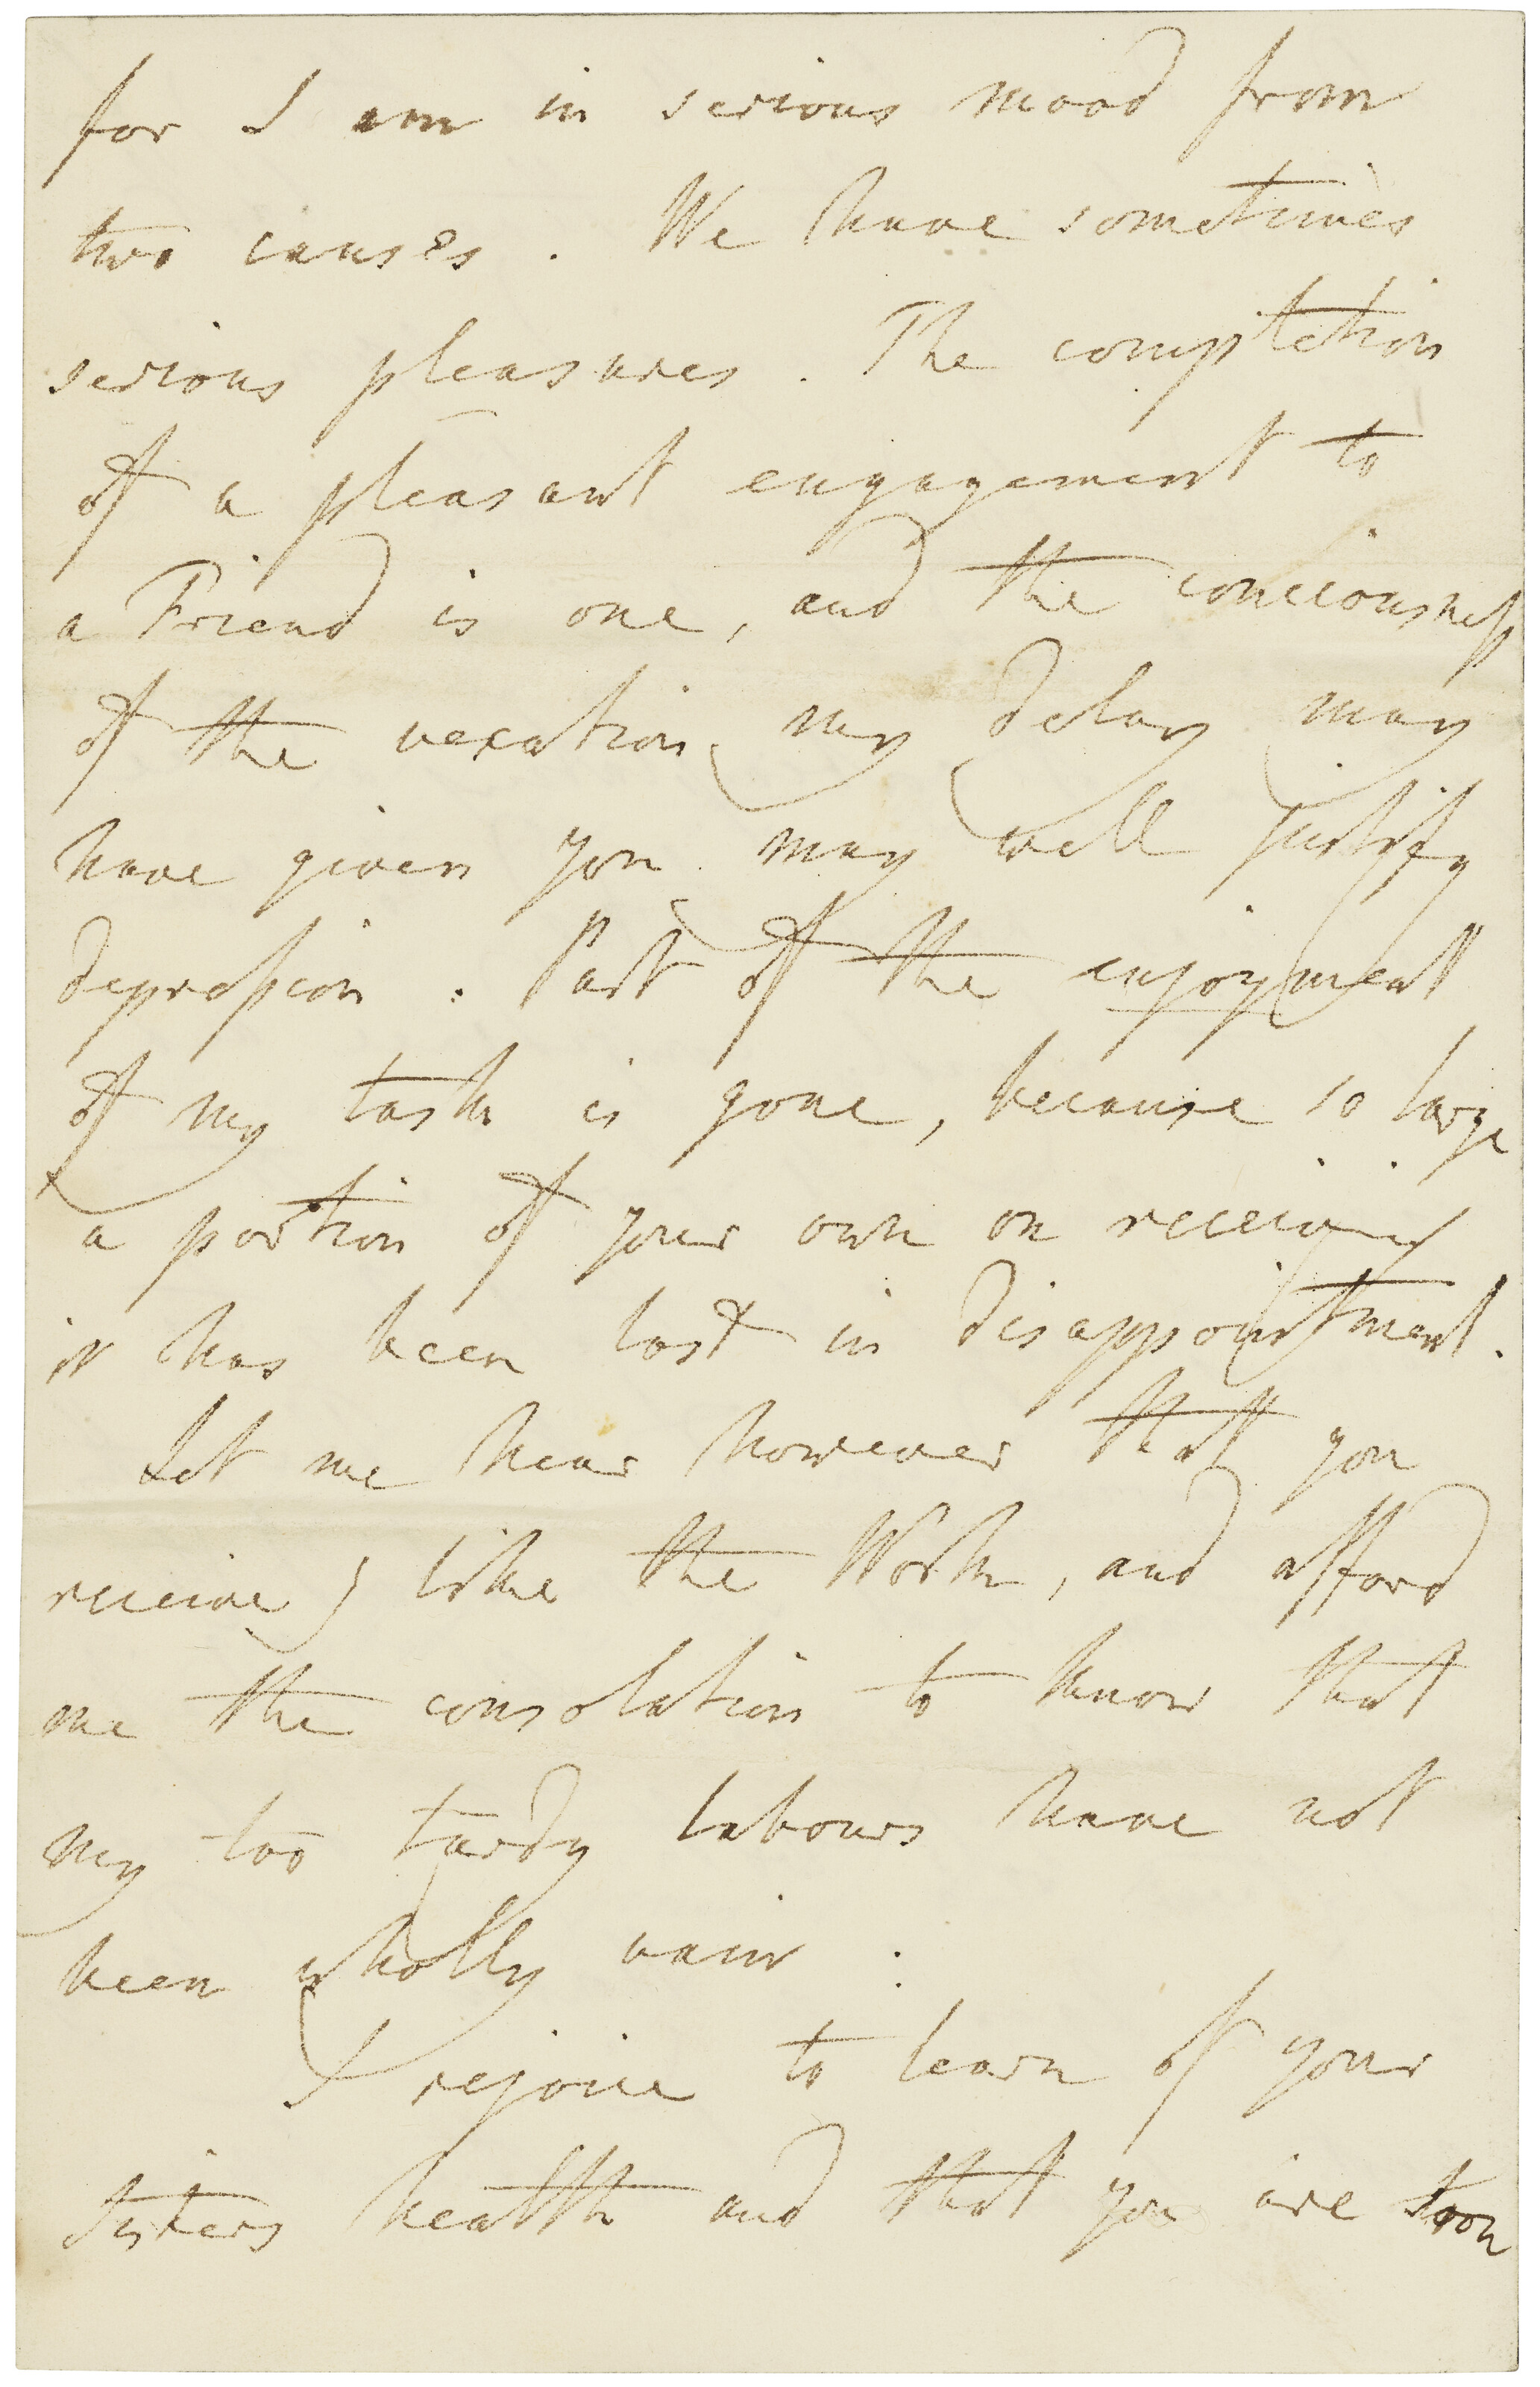 for I am in serious mood from
two causes. We have sometimes
serious pleasures. The completion
of a pleasant engagement to
a Friend is one, and the conciousness
of the vexation my delay may
have given you may well justify
depression. Part of the enjoyment
of my task is gone, because so large
a portion of your own on receiving
it has been lost in disappointment.
Let me hear however that you
receive & like the Work, and afford
me the consolation to know that
my too tardy labours have not
been wholly vain.
I rejoice to learn of your
Sisters health and that you are soon